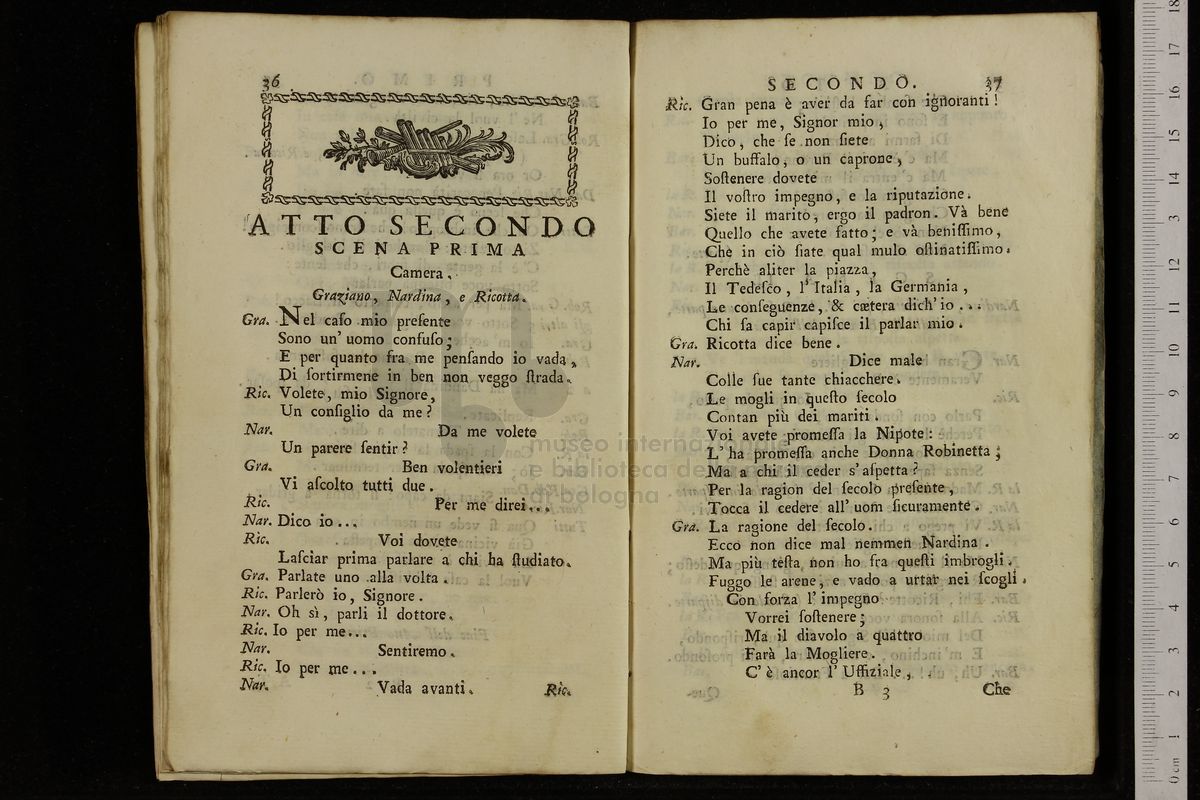 36
ATTO SECONDO
SCENA PRIMA
Camera.
Graziano, Nardina, e Ricotta.
Gra. Nel caſo mio preſente
Sono un' uomo confuſo;
E per quanto fra me penſando io vada,
Di ſortirmene in ben non veggo ſtrada.
Ric. Volete, mio Signore,
Un conſiglio da me?
Nar. Da me volete
Un parere ſentir?
Gra. Ben volentieri
Vi aſcolto tutti due.
Ric. Per me direi...
Nar. Dico io...
Ric. Voi dovete
Laſciar prima parlare a chi ha ſtudiato.
Gra. Parlate uno alla volta.
Ric. Parlerò io, Signore.
Nar. Oh sì, parli il dottore.
Ric. Io per me...
Nar. Sentiremo.
Ric. Io per me...
Nar. Vada avanti.
Ric.
SECONDO. 37
Ric. Gran pena è aver da far con ignoranti!
Io per me, Signor mio,
Dico, che ſe non ſiete
Un buffalo, o un caprone,
Soſtenere dovete
Il voſtro impegno, e la riputazione.
Siete il marito, ergo il padron. Và bene
Quello che avete fatto; e và beniſſimo,
Che in ciò ſiate qual mulo oſtinatiſſimo.
Perchè aliter la piazza,
Il Tedeſco, l' Italia, la Germania,
Le conſeguenze, & cætera dich' io...
Chi ſa capir capiſce il parlar mio.
Gra. Ricotta dice bene.
Nar. Dice male
Colle ſue tante chiacchere.
Le mogli in queſto ſecolo
Contan più dei mariti.
Voi avete promeſſa la Nipote:
L' ha promeſſa anche Donna Robinetta;
Ma a chi il ceder s' aſpetta?
Per la ragion del ſecolo preſente,
Tocca il cedere all' uom ſicuramente.
Gra. La ragione del ſecolo.
Ecco non dice mal nemmen Nardina.
Ma più teſta non ho fra queſti imbrogli.
Fuggo le arene, e vado a urtar nei ſcogli.
Con forza l' impegno
Vorrei ſoſtenere;
Ma il diavolo a quattro
Farà la Mogliere.
C' è ancor l' Uffiziale,
B 3
Che
museo internazionale
e biblioteca della musica
di bologna
0 cm 1 2 3 4 5 6 7 8 9 10 11 12 13 14 15 16 17 18